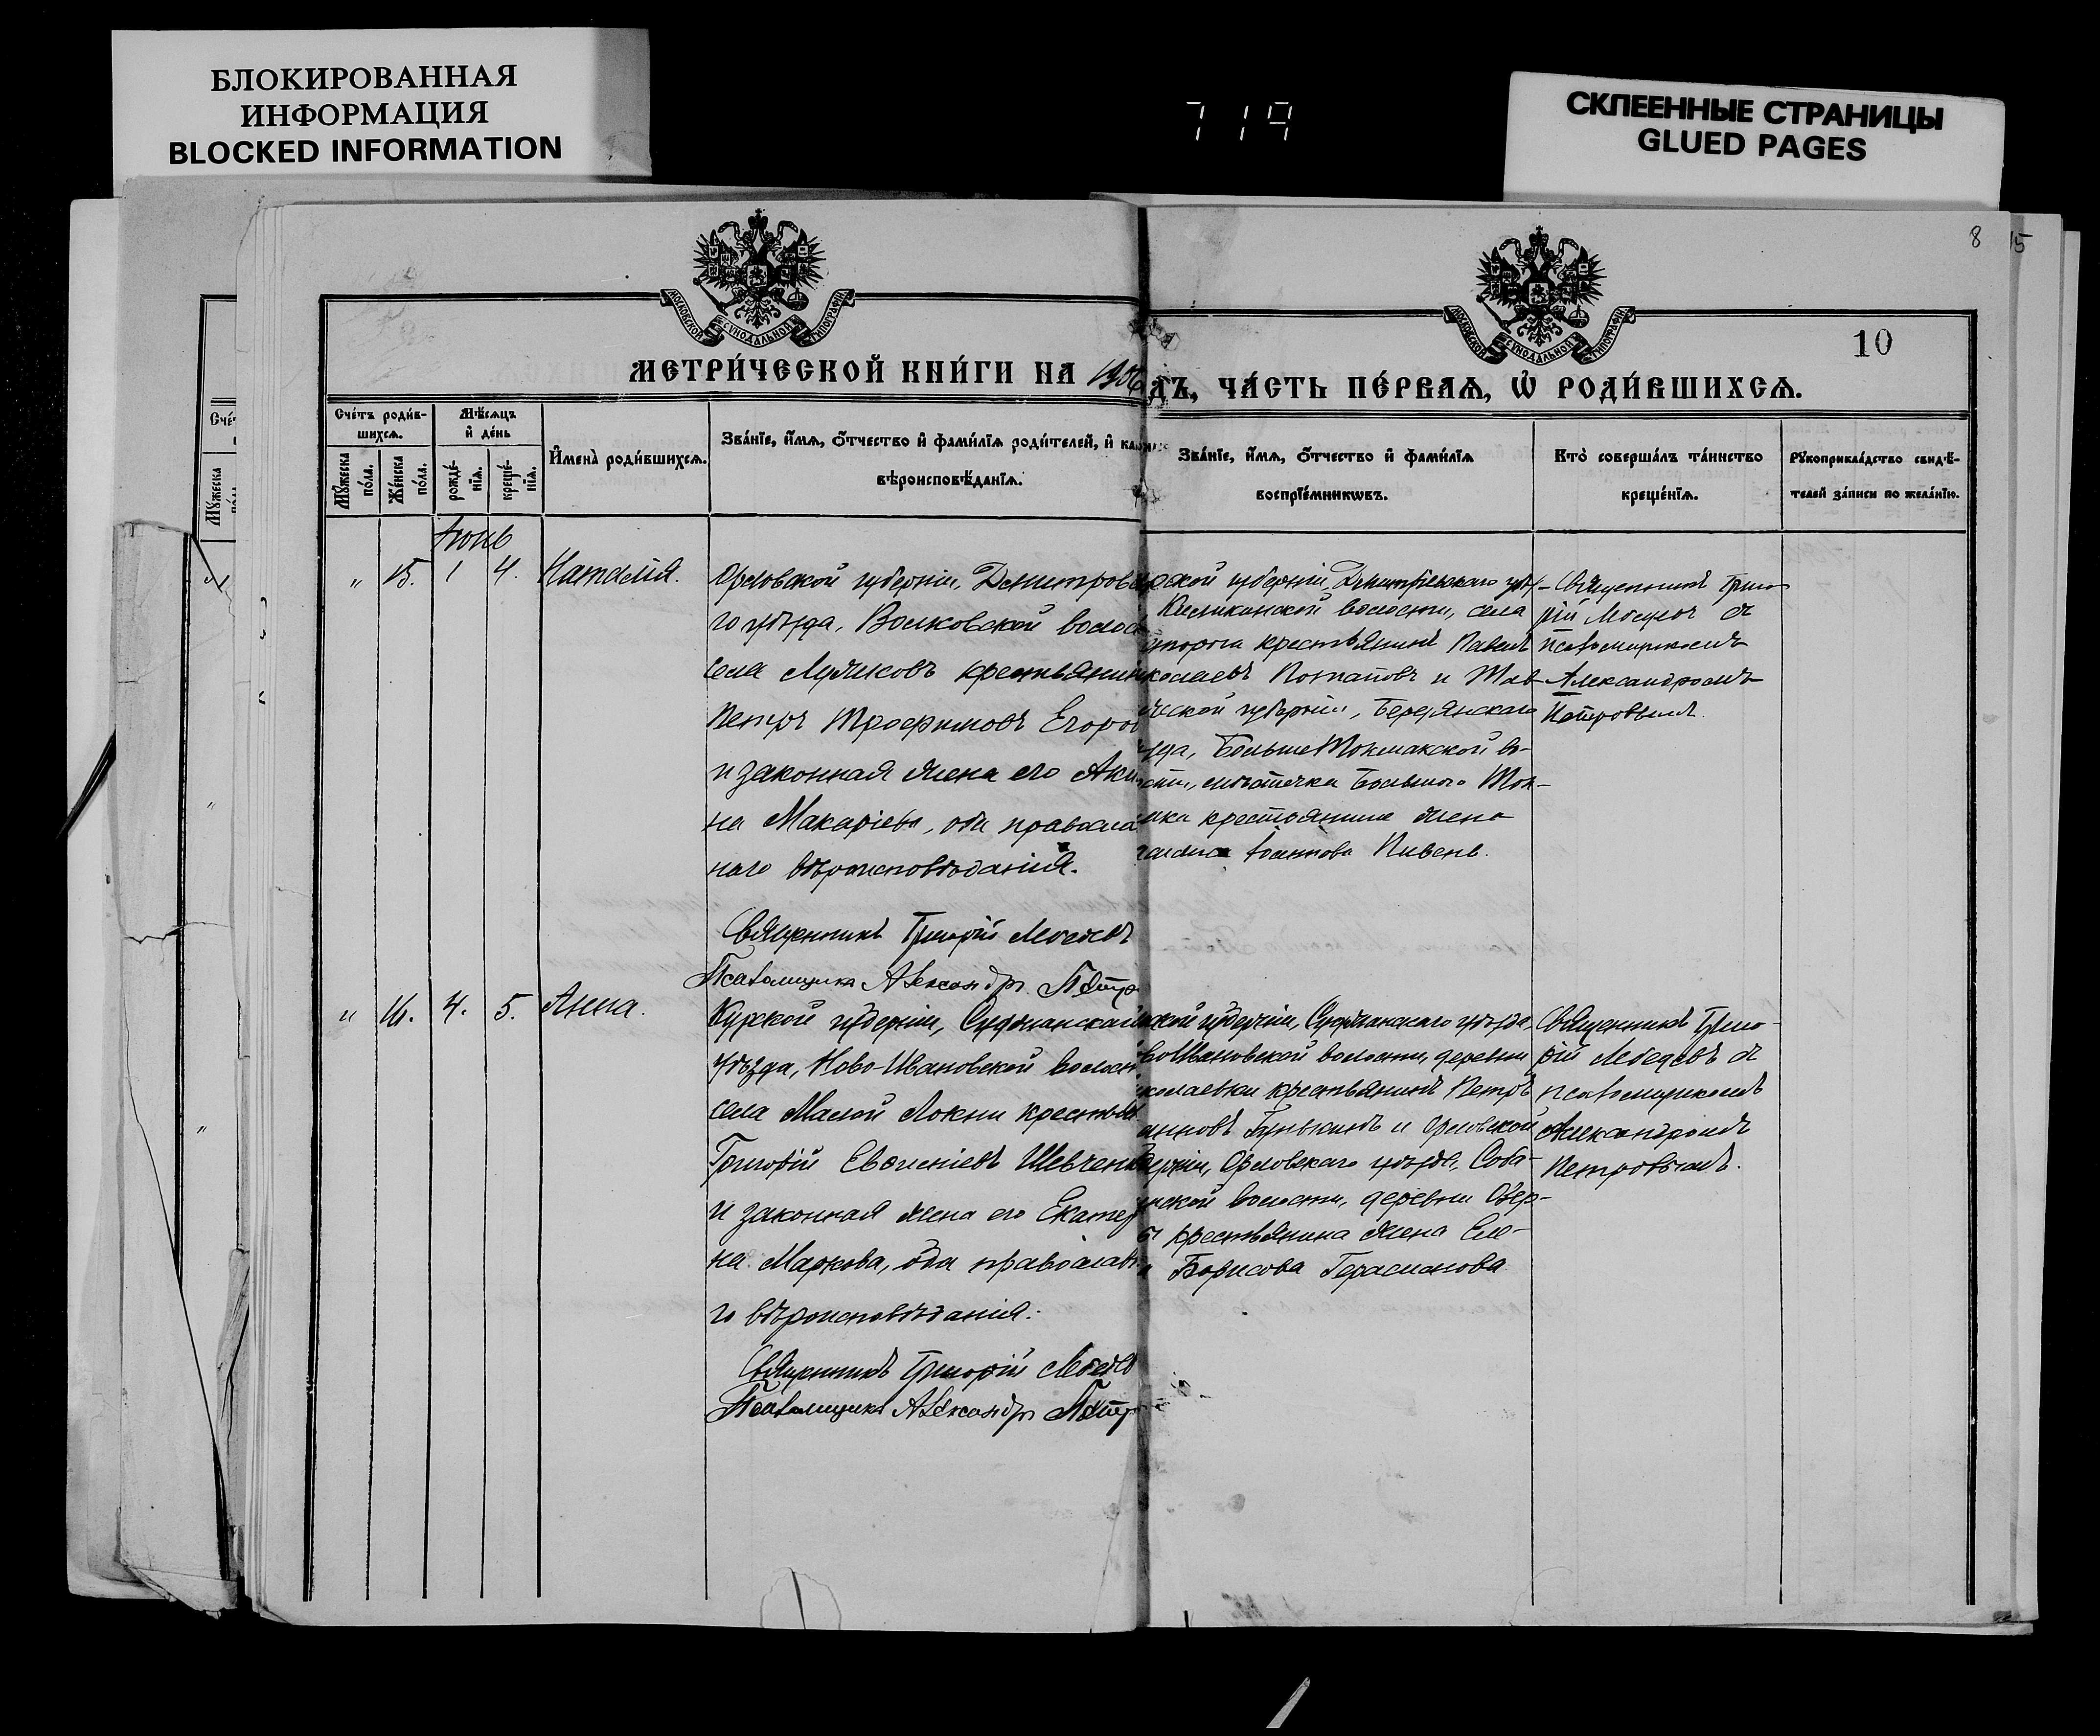 БЛОКИРОВАННАЯ
ИНФОРМАЦИЯ
BLOCKED INFORMATION
719
СКЛЕЕННЫЕ СТРАНИЦЫ
GLUED PAGES
8 15
МОСКОВСКОЙ СѴНОДАЛЬНОЙ ТИПОГРАФІИ
МОСКОВСКОЙ СѴНОДАЛЬНОЙ ТИПОГРАФІИ
10
МЕТРИ́ЧЕСКОЙ КНИ́ГИ НА 1906
ДЪ, ЧА́СТЬ ПЕ́РВАѦ, Ѡ҆ РОДИ́ВШИХСѦ.
Сче́тъ роди́в-
шихсѧ.
Мѣ́сѧцъ
и҆ де́нь
Мꙋ́жеска
по́ла.
Же́нска
по́ла.
рожде́-
нїѧ.
креще́-
нїѧ.
И҆мена̀ роди́вшихсѧ.
Зва́нїе, и҆́мѧ, ѻ҆́тчество и҆ фами́лїѧ роди́телей, и҆
вѣроисповѣ́данїѧ.
Зва́нїе, и҆́мѧ, ѻ҆́тчество и҆ фами́лїѧ
воспрїе́мникѡвъ.
Кто̀ соверша́лъ та́инство
креще́нїѧ.
Рꙋкоприкла́дство свидѣ́-
телей за́писи по жела́нїю.
Іюнь
" 15. 1 4. Наталія.
Орловской губерніи, Дмитров
го уѣзда, Волковской волос
села Лубяковъ крестьянин
Петръ Трофимовъ Егоро
и законная жена его Аки
на Макаріева, оба правосла
наго вѣроисповѣданія.
Священникъ Григорій Лебедевъ
Псаломщикъ Александръ Петро
ской губерніи, Дмитріевскаго уѣз-
волости, села
крестьянинъ Павелъ
колаевъ Потаповъ и Тав-
ческой губерніи, Бердянскаго
зда, Больше Токмакской во-
сти, мѣстечка Большого Ток-
мака крестьянина жена
Іоаннова Пивень.
Священникъ Григо
рій Лебедевъ съ
псаломщикомъ
Александромъ
Петровымъ.
" 16. 4. 5. Анна.
Курской губерніи, Суджанскаго
уѣзда, Ново-Ивановской волости
села Малой Локни крестьян
Григорій Евгеніевъ Шевченк
и законная жена его Екатер
на Маркова, оба православ
го вѣроисповѣданія.
Священникъ Григорій Лебедев
Псаломщикъ Александръ Петр
ской губерніи, Суджанскаго уѣзда,
во-Ивановской волости, деревни
колаевки крестьянинъ Петръ
анновъ Бунькинъ и Орловской
берніи, Орловскаго уѣзда,
ской волости, деревни Озер-
крестьянина жена Еле-
а Борисова Герасимова
Священникъ Григо-
рій Лебедевъ съ
псаломщикомъ
Александромъ
Петровымъ.